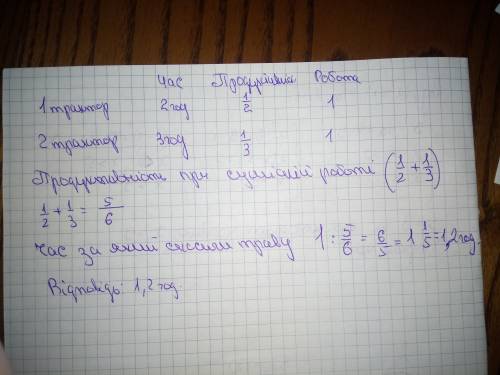 Час Продуктивн. Робота
1 трактор 2 год 1/2 1
2 трактор 3 год 1/3 1
Продуктивність при сумісній роботі (1/2 + 1/3)
1/2 + 1/3 = 5/6
Час за який скосили траву 1 : 5/6 = 6/5 = 1 1/5 = 1,2 год.
Відповідь: 1,2 год.